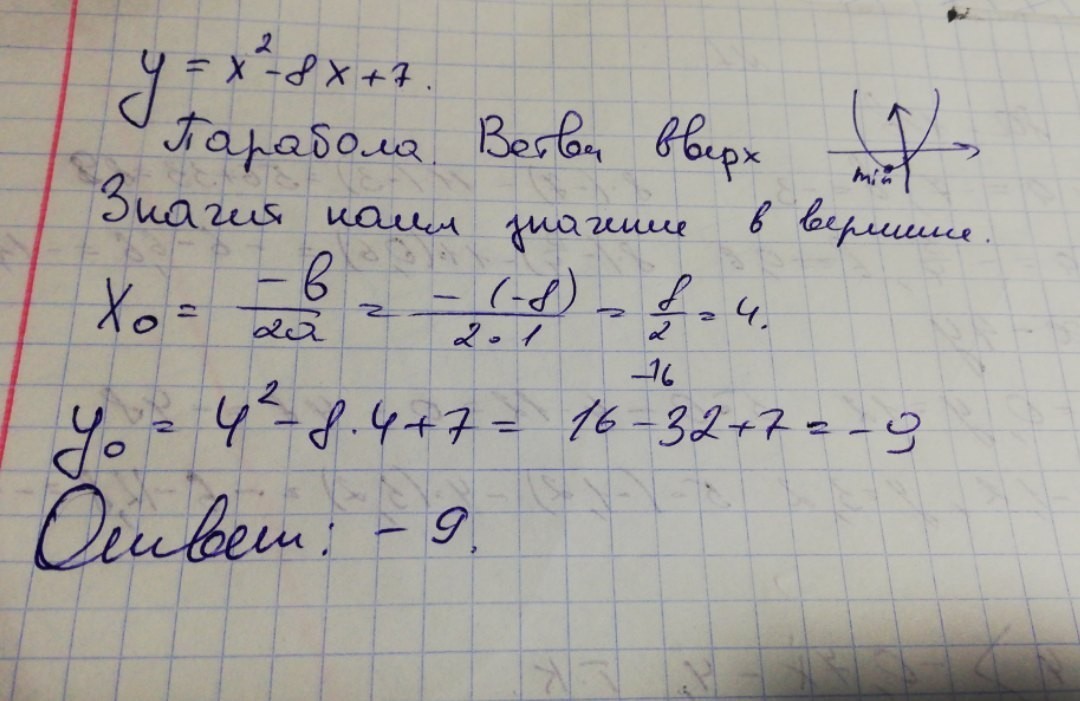 y = x² - 8x + 7.
Парабола. Ветви вверх
min
Значит наим значение в вершине.
x₀ = -b/2a = -(-8)/2·1 = 8/2 = 4.
-16
y₀ = 4² - 8·4 + 7 = 16 - 32 + 7 = -9
Ответ: -9.